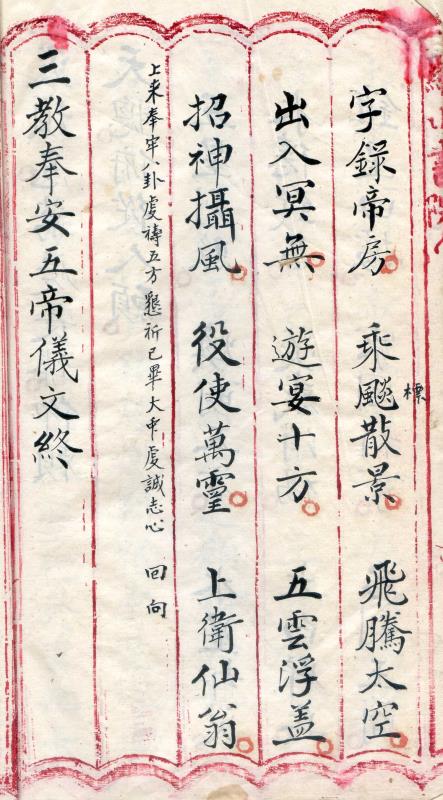 字錄帝房 乘飈散景 飛騰太空
標
出入冥無 遊宴十方 五雲浮盖
招神攝風 役使萬靈 上衛仙翁
上来奉牢八卦虔禱五方懇祈已畢大申虔誠志心 回向
三教奉安五帝儀文終